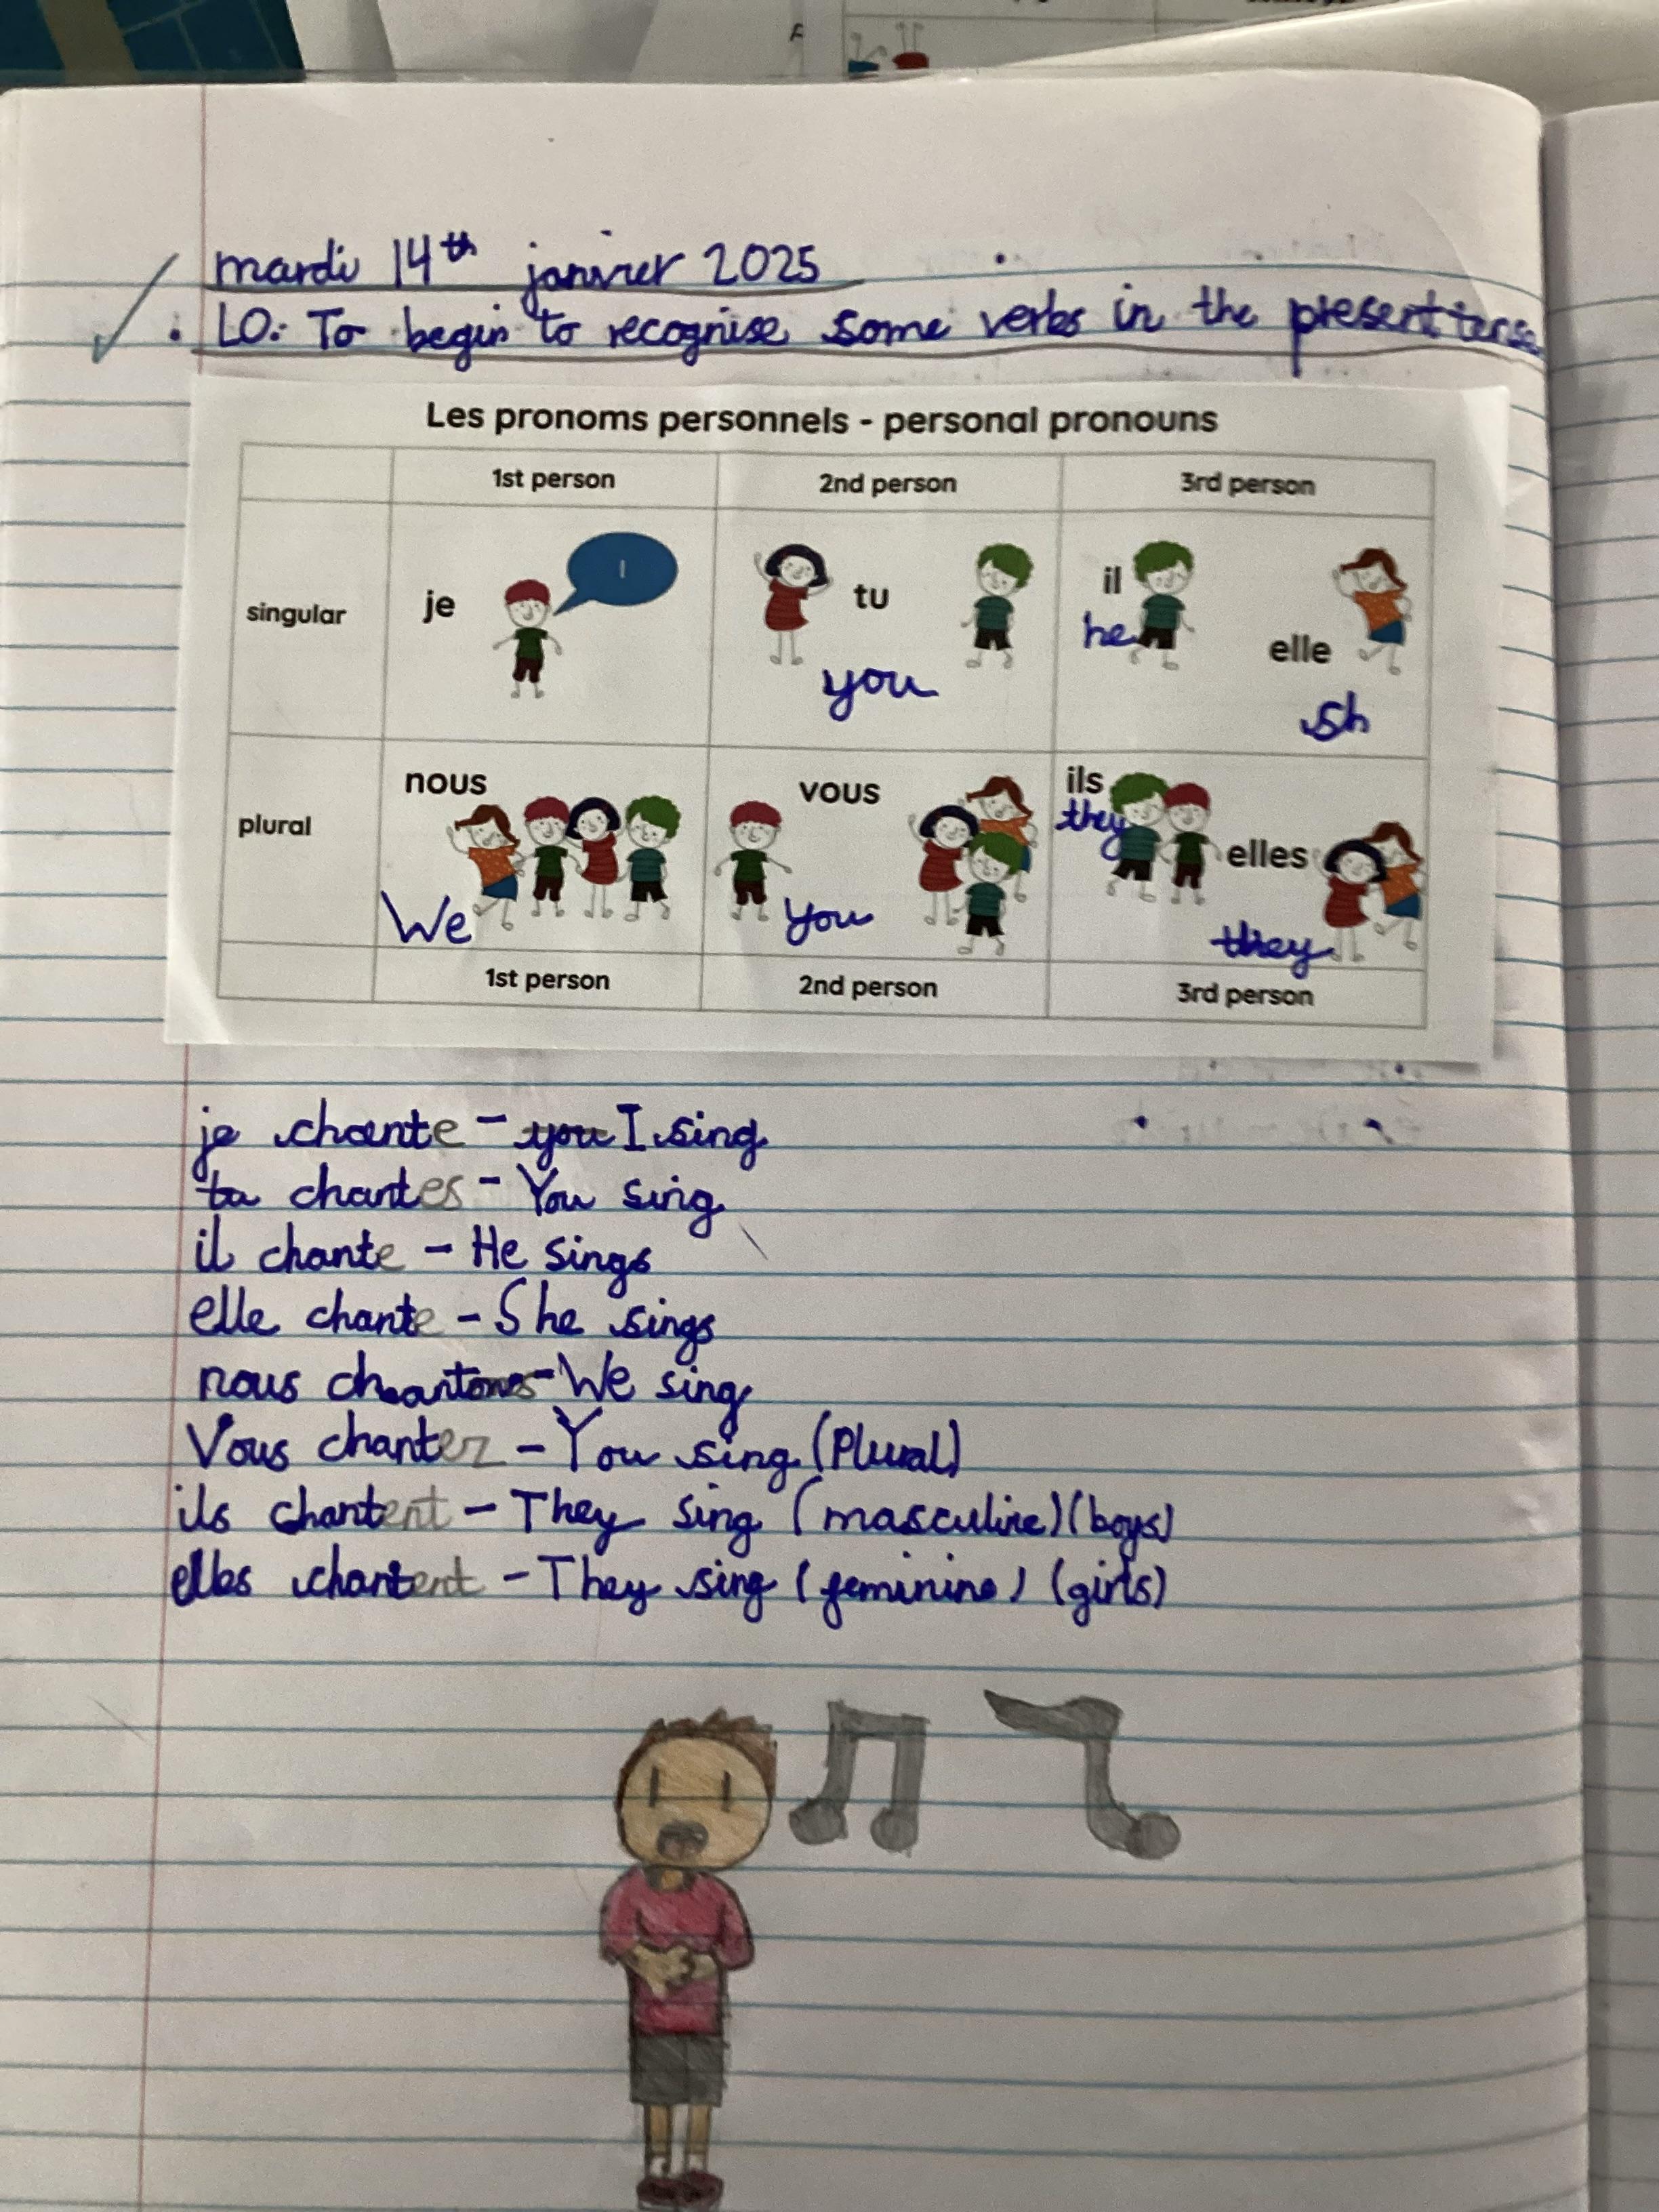 mardi 14th janvier 2025
LO: To begin to recognise some verbs in the present tense
Les pronoms personnels - personal pronouns
1st person 2nd person 3rd person
singular je I tu you il he elle sh
plural nous We vous you ils they elles they
1st person 2nd person 3rd person
je chante - you I sing
tu chantes - You sing
il chante - He sings
elle chante - She sings
nous chantons - We sing
Vous chantez - You sing (Plural)
ils chantent - They sing (masculine) (boys)
elles chantent - They sing (feminine) (girls)